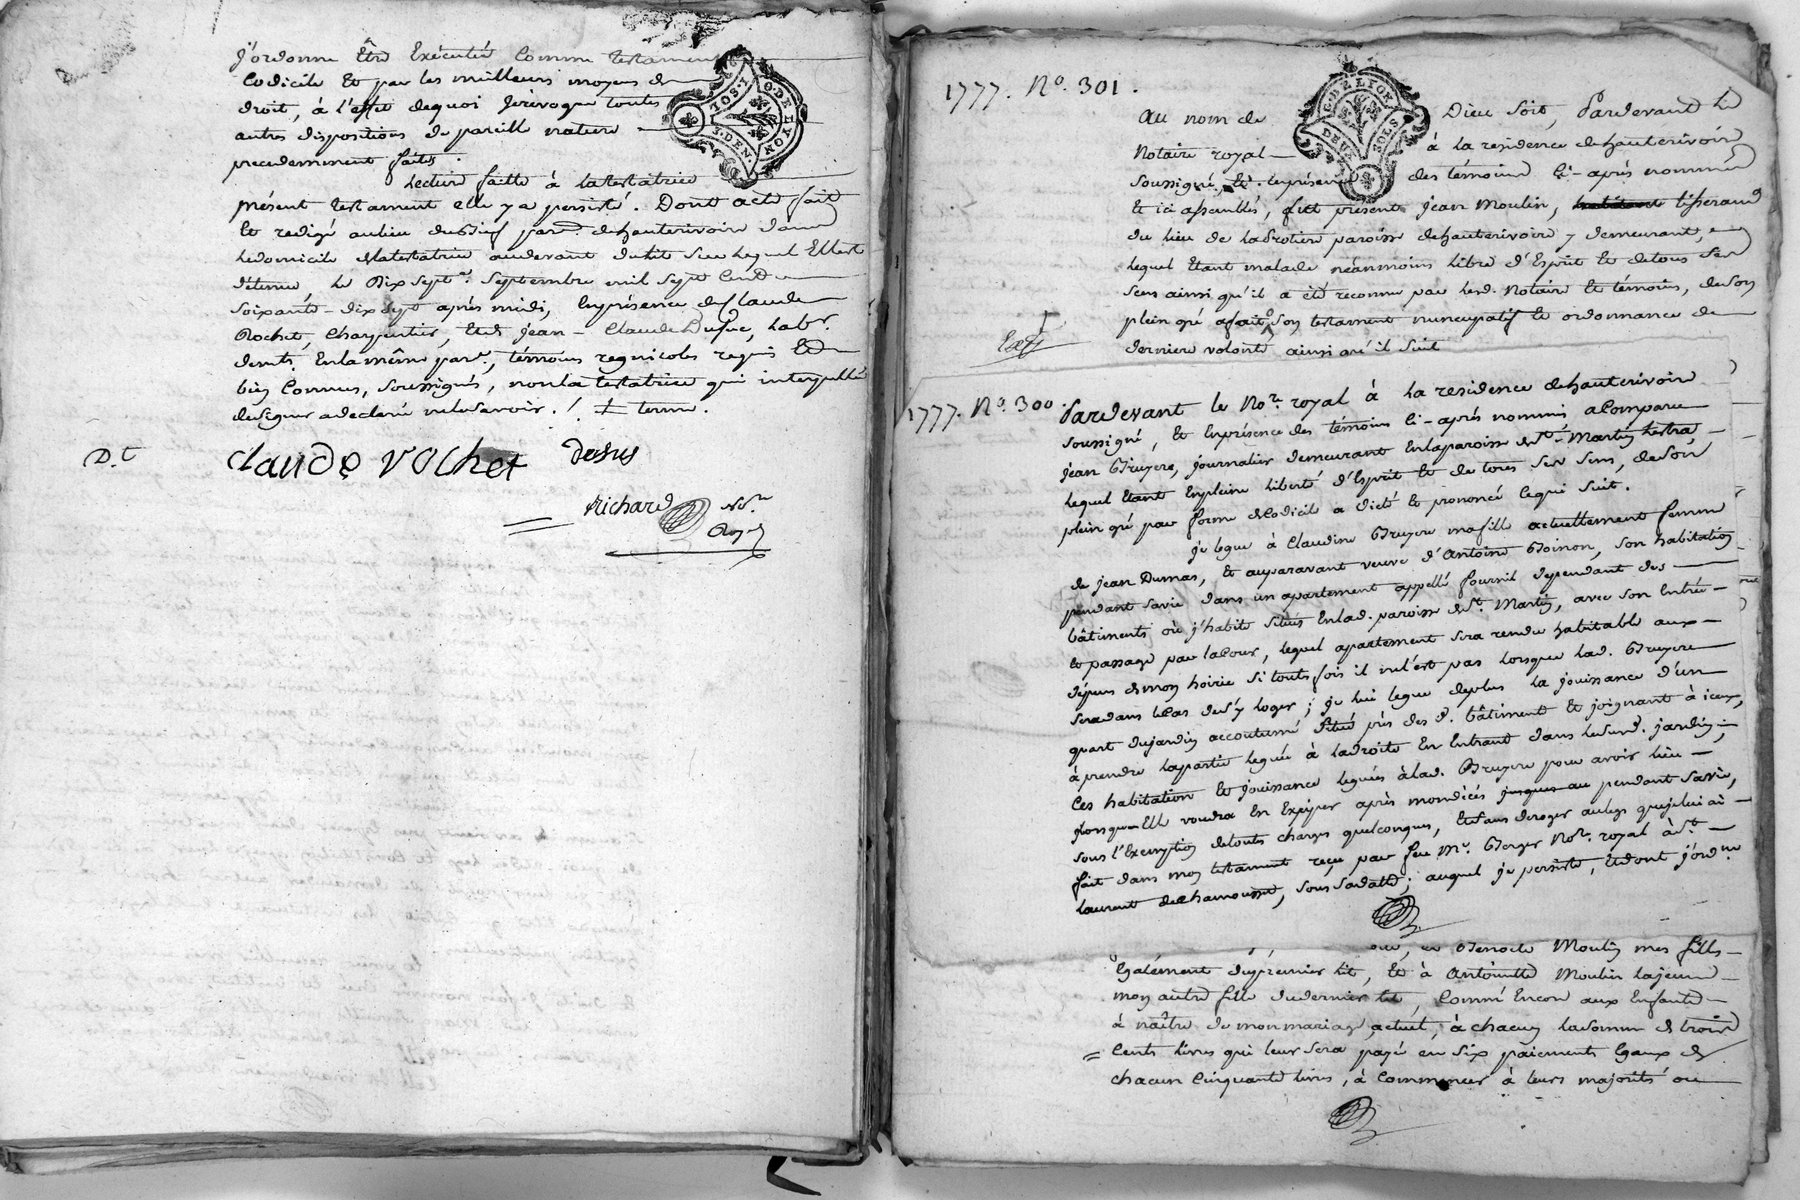 j'ordonne Etre Exécuté Comme testament
Codicile Et par les meilleurs moyens de
droit, à l'effet dequoi Jerevoque toutes
autres dispositions de pareille nature
precedemment faites.
Lecture faitte à latestatrice
présent testament elle y a persisté. Dont acte fait
Et redigé aulieu par. dehauterivoire dans
ledomicile delatestatrice audevant dulit
détenue, le Dix sept. Septembre mil Sept Cent
Soixante-dix Sept après midi, Enprésence de Claude
Rochet, Charpentier, Et de jean-Claude Dusuc, lab.r
demts. Enlamême par.e, témoins regnicoles requis Et
bien Connus, Soussignés, non la testatrice qui interpellée
designer adeclaré nelesavoir ./.
D.t
claude rochet dusus
Richard No.re
Roy.l
G. DE LYON
2. SOLS
J. DEN.
1777. No. 301.
Au nom de Dieu Soit, Pardevant le
Notaire royal à la residence dehauterivoire
Soussigné, Et Enprésence des témoins Ci-après nommés
Et ici assemblés, fut présent jean Moulin, tisserand
du lieu de paroisse dehauterivoire y demeurant,
lequel Etant malade néanmoins libre d'Esprit Et detous Ses
Sens ainsi qu'il a été reconnu par led. Notaire Et témoins, deson
plein gré afait Son testament nuncupatif Et ordonnance de
derniere volonté, ainsi qu'il Suit
Ex.
G. DE LYON
DEUX SOLS
1777. No. 300.
Pardevant le No.re royal à la residence dehauterivoire
Soussigné, Et Enprésence des témoins Ci-après nommés aComparu
jean Bruyere, journalier demeurant Enlaparoisse de St. Martin Lestra
lequel Etant Enpleine liberté d'Esprit Et de tous Ses Sens, deson
plein gré par forme deCodicile a dicté Et prononcé Cequi Suit.
je legue à Claudine Bruyere mafille actuellement femme
de jean Dumas, Et auparavant veuve d'Antoine Boinon, Son habitation
pendant Savie dans un apartement appellé fournil dependant des
bâtiments où j'habite Situés Enlad. paroisse de St. Martin, avec Son Entrée
Et passage par laCour, lequel apartement Sera rendu habitable aux
dépens de mon hoirie Si toutefois il nel'est pas lorsque lad. Bruyere
Seradans leCas des'y loger; je lui legue deplus la jouissance d'un
quart dujardin accoutumé Situé près des d. bâtiments Et joignant à iceux,
à prendre lapartie leguée à ladroite En Entrant dans lesusd. jardin;
Ces habitation Et jouissance leguées àlad. Bruyere pour avoir lieu
lorsqu-Elle voudra En Exiger après mondécés jusques au pendant Savie,
sous l'Exemption detoutes charges quelconques, Etsans deroger aulegs quejeluiai
fait dans mon testament reçu par feu Me. Berger No.re royal àSt.
Laurent deChamousset, Sous Sadatte; auquel je persiste, Etdont j'ord.ne
Benoite Moulin mes filles
Egalement dupremier lit, Et à Antoinette Moulin lajeune
mon autre fille dudernier lit, Comme Encore aux Enfants
à naître de monmariage actuel, à chacun lasomme de trois
Cents livres qui leur Sera payé en Six paiements Egaux de
chacun Cinquante livres, à Commencer à leurs majorités ou